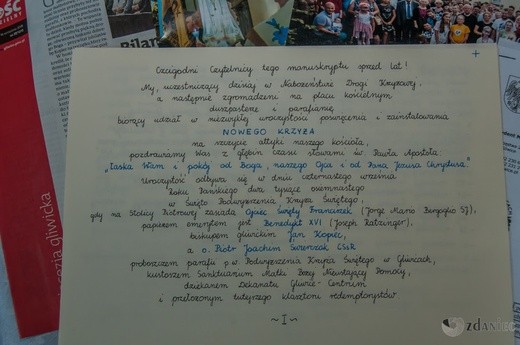 Bilar
cezja gliwicka
+
Czcigodni Czytelnicy tego manuskryptu sprzed lat!
My, uczestniczący dzisiaj w Nabożeństwie Drogi Krzyżowej,
a następnie zgromadzeni na placu kościelnym,
duszpasterze i parafianie,
biorący udział w niezwykłej uroczystości poświęcenia i zainstalowania
NOWEGO KRZYŻA
na szczycie attyki naszego kościoła,
pozdrawiamy Was z głębin czasu słowami św. Pawła Apostoła:
"Łaska Wam i pokój od Boga, naszego Ojca i od Pana Jezusa Chrystusa"
Uroczystość odbywa się w dniu czternastego września
Roku Pańskiego dwa tysiące osiemnastego
w Święto Podwyższenia Krzyża Świętego,
gdy na Stolicy Piotrowej zasiada Ojciec Święty Franciszek (Jorge Mario Bergoglio SJ),
papieżem emerytem jest Benedykt XVI (Joseph Ratzinger),
biskupem gliwickim Jan Kopiec,
a o. Piotr Joachim Świerczok CSsR
proboszczem parafii p.w. Podwyższenia Krzyża Świętego w Gliwicach,
kustoszem Sanktuarium Matki Bożej Nieustającej Pomocy,
dziekanem Dekanatu Gliwice-Centrum
i przełożonym tutejszego klasztoru redemptorystów
~I~